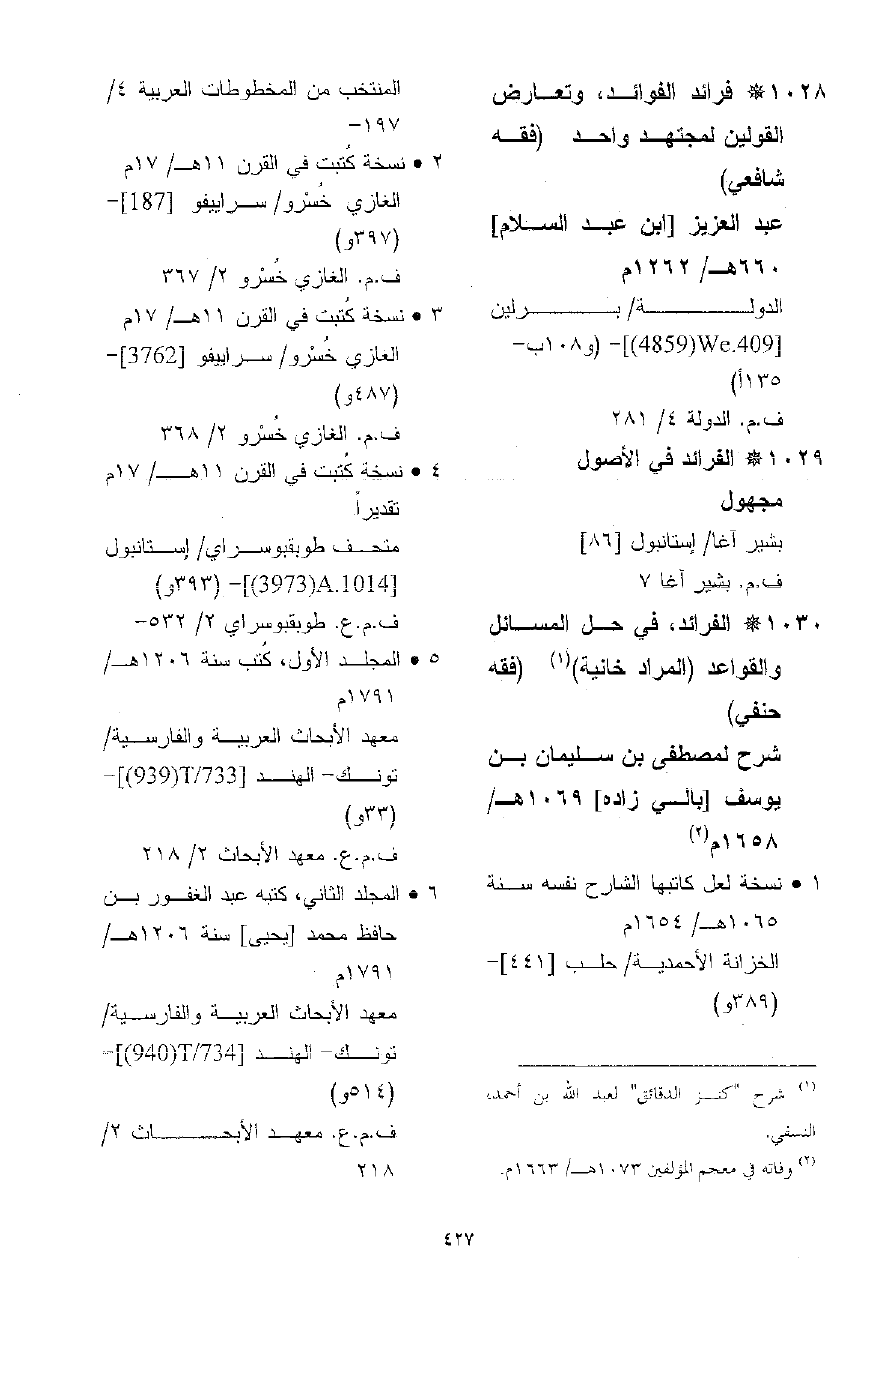 ١٠٢٨ * فرائد الفوائد، وتعارض
القولين لمجتهد واحد (فقه
شافعي)
عبد العزيز [ابن عبد السلام]
٦٦٠هـ/ ١٢٦٢م
الدولة/ برلين
[We.409(4859)]- (و١٠٨ب-
١٣٥أ)
ف.م. الدولة ٤/ ٢٨١
١٠٢٩ * الفرائد في الأصول
مجهول
بشير آغا/ إستانبول [٨٦]
ف.م. بشير آغا ٧
١٠٣٠ * الفرائد، في حل المسائل
والقواعد (المراد خانية)(١) (فقه
حنفي)
شرح لمصطفى بن سليمان بن
يوسف [بالي زاده] ١٠٦٩هـ/
١٦٥٨م(٢)
١ • نسخة لعل كاتبها الشارح نفسه سنة
١٠٦٥هـ/ ١٦٥٤م
الخزانة الأحمدية/ حلب [٤٤١]-
(٣٨٩و)
(١) شرح "كنز الدقائق" لعبد الله بن أحمد،
النسفي.
(٢) وفاته في معجم المؤلفين ١٠٧٣هـ/ ١٦٦٣م.
المنتخب من المخطوطات العربية ٤/
١٩٧-
٢ • نسخة كُتبت في القرن ١١هـ/ ١٧م
الغازي خُسْرو/ سراييفو [187]-
(٣٩٧و)
ف.م. الغازي خُسْرو ٢/ ٣٦٧
٣ • نسخة كُتبت في القرن ١١هـ/ ١٧م
الغازي خُسْرو/ سراييفو [3762]-
(٤٨٧و)
ف.م. الغازي خُسْرو ٢/ ٣٦٨
٤ • نسخة كُتبت في القرن ١١هـ/ ١٧م
تقديراً
متحف طوبقبوسراي/ إستانبول
[A.1014(3973)]- (٣٩٣و)
ف.م.ع. طوبقبوسراي ٢/ ٥٣٢-
٥ • المجلد الأول، كُتب سنة ١٢٠٦هـ/
١٧٩١م
معهد الأبحاث العربية والفارسية/
تونك- الهند [T/733(939)]-
(٣٣و)
ف.م.ع. معهد الأبحاث ٢/ ٢١٨
٦ • المجلد الثاني، كتبه عبد الغفور بن
حافظ محمد [يحيى] سنة ١٢٠٦هـ/
١٧٩١م
معهد الأبحاث العربية والفارسية/
تونك- الهند [T/734(940)]-
(٥١٤و)
ف.م.ع. معهد الأبحاث ٢/
٢١٨
٤٢٧